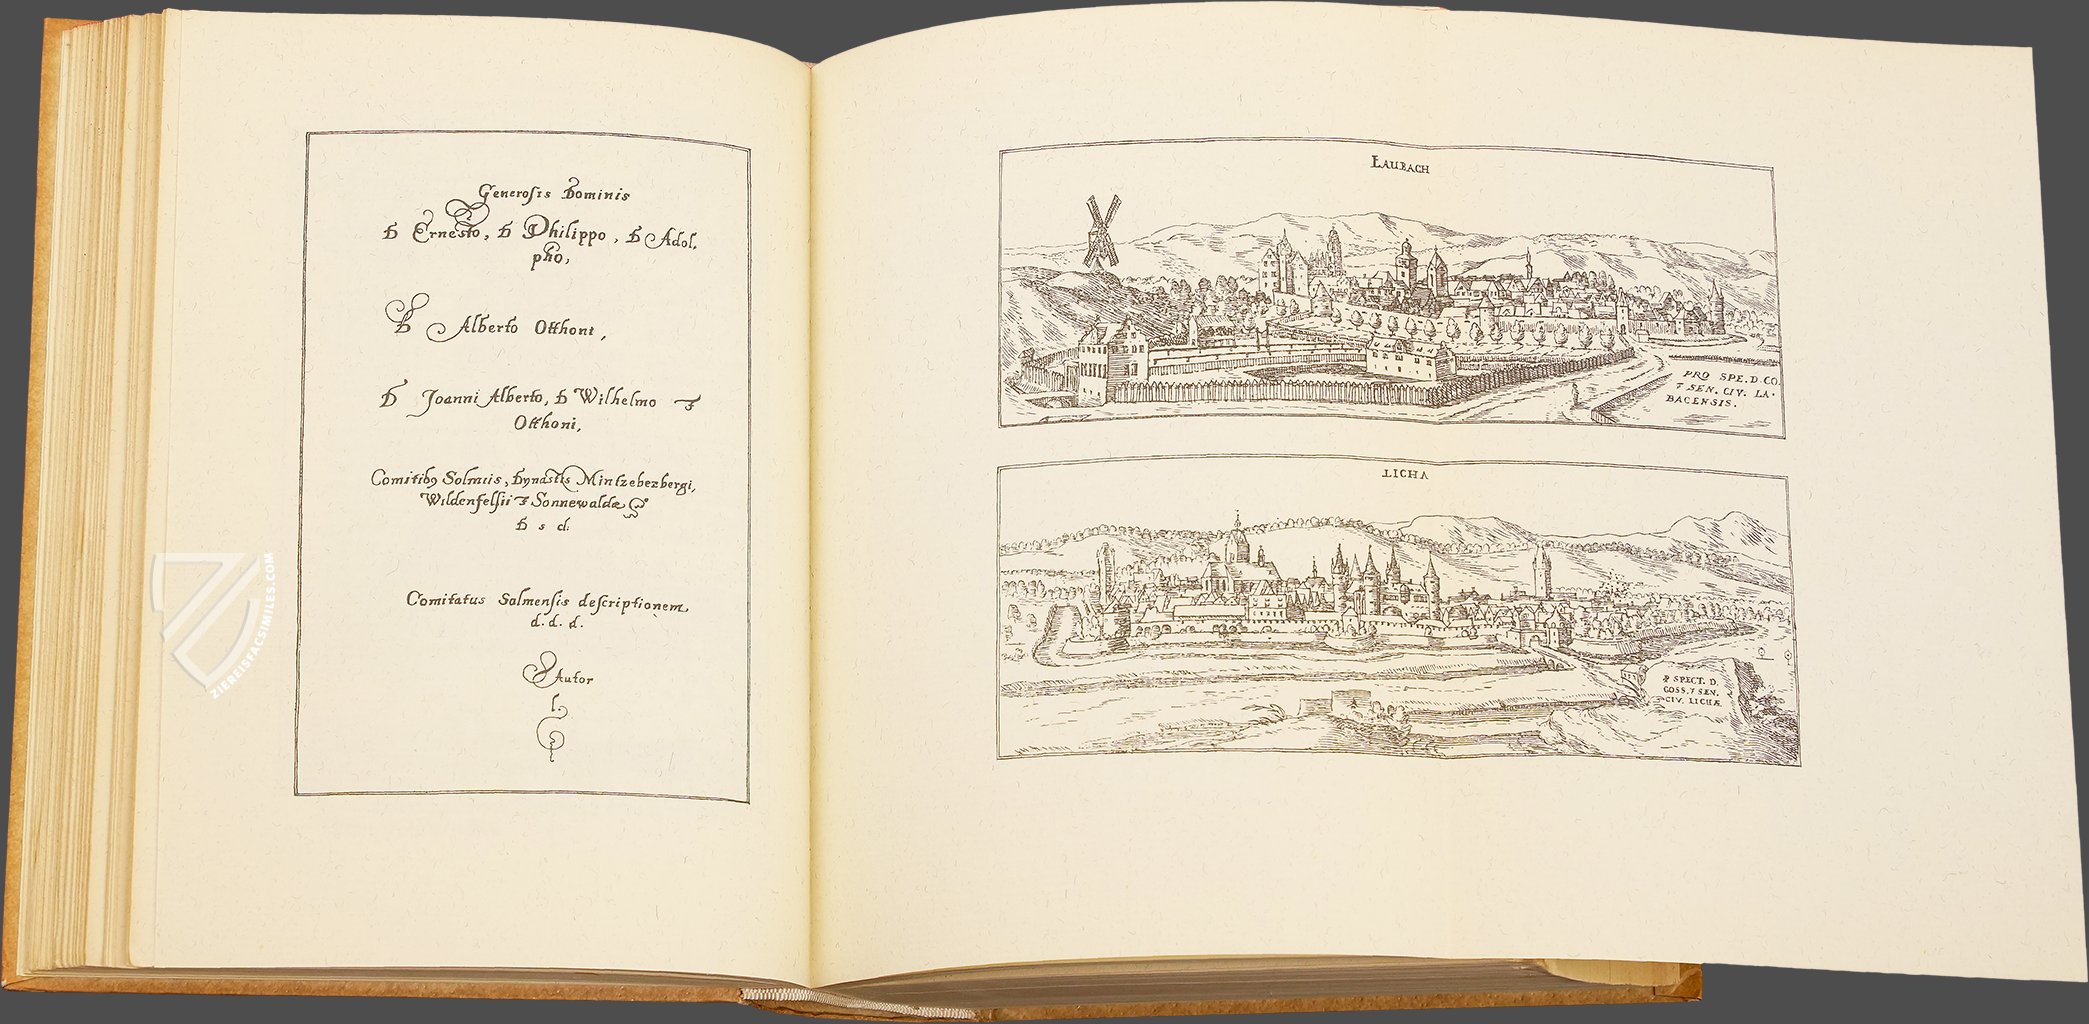 Generosis Dominis
D Ernesto, D Philippo, D Adol.
pho,
D Alberto Otthoni,
D Joanni Alberto, D Wilhelmo &
Otthoni,
Comitibꝰ Solmiis, Dynastis Mintzebergi,
Wildenfelsii & Sonnewaldæ
D s d.
Comitatus Solmensis descriptionem
d. d. d.
Autor
LAUBACH
PRO SPE. D. CO.
& SEN. CIV. LA·
BACENSIS.
LICHA
SPECT. D.
COSS. & SEN.
CIV. LICHÆ.
ZIEREISFACSIMILES.COM